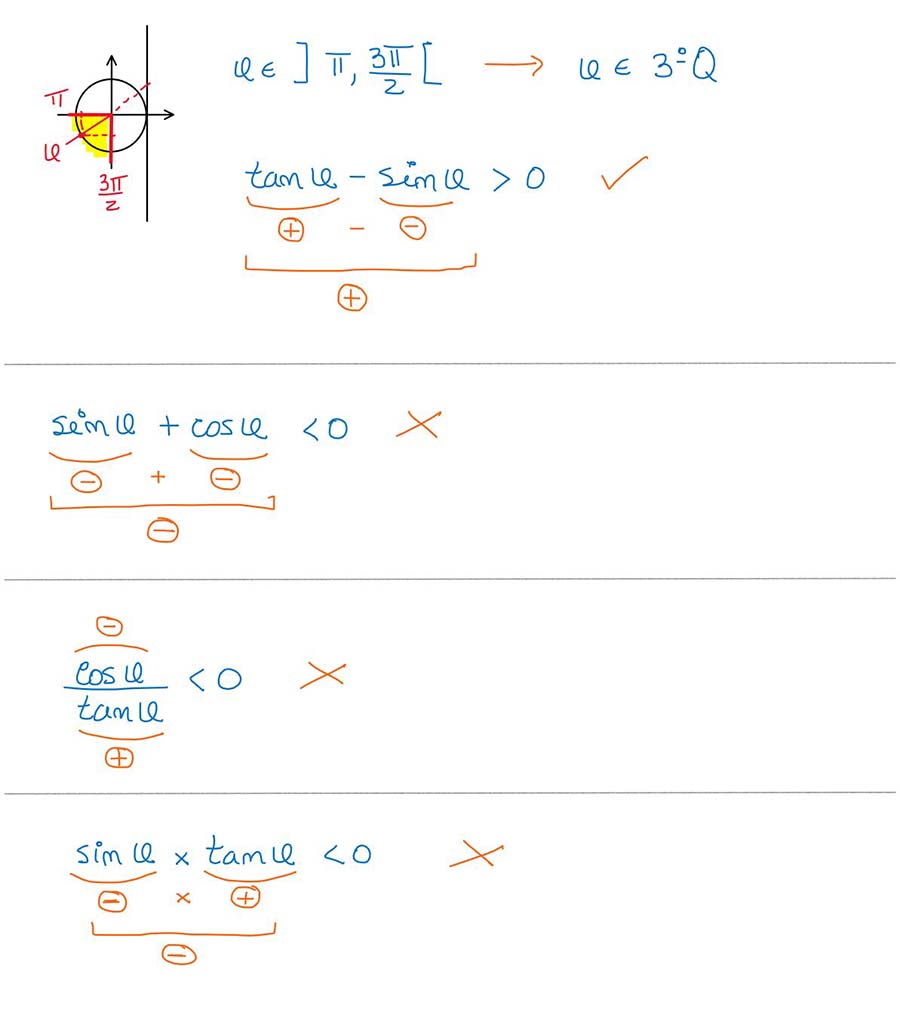 π
α
3π/2
α ∈ ] π, 3π/2 [ → α ∈ 3ºQ
tan α - sin α > 0 ✓
⊕ - ⊖
⊕
sin α + cos α < 0 ×
⊖ + ⊖
⊖
⊖
cos α / tan α < 0 ×
⊕
sin α × tan α < 0 ×
⊖ × ⊕
⊖